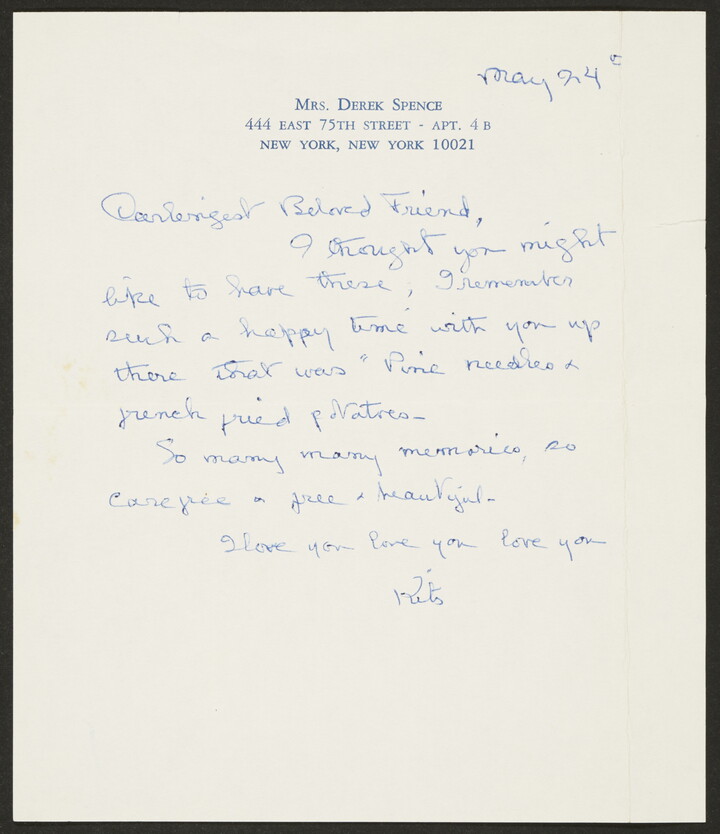 May 24th
MRS. DEREK SPENCE
444 EAST 75TH STREET - APT. 4 B
NEW YORK, NEW YORK 10021
Darlingest Beloved Friend,
I thought you might
like to have these; I remember
such a happy time with you up
there that was "Pine needles &
french fried potatoes—
So many many memories, so
carefree & free & beautiful—
I love you love you love you